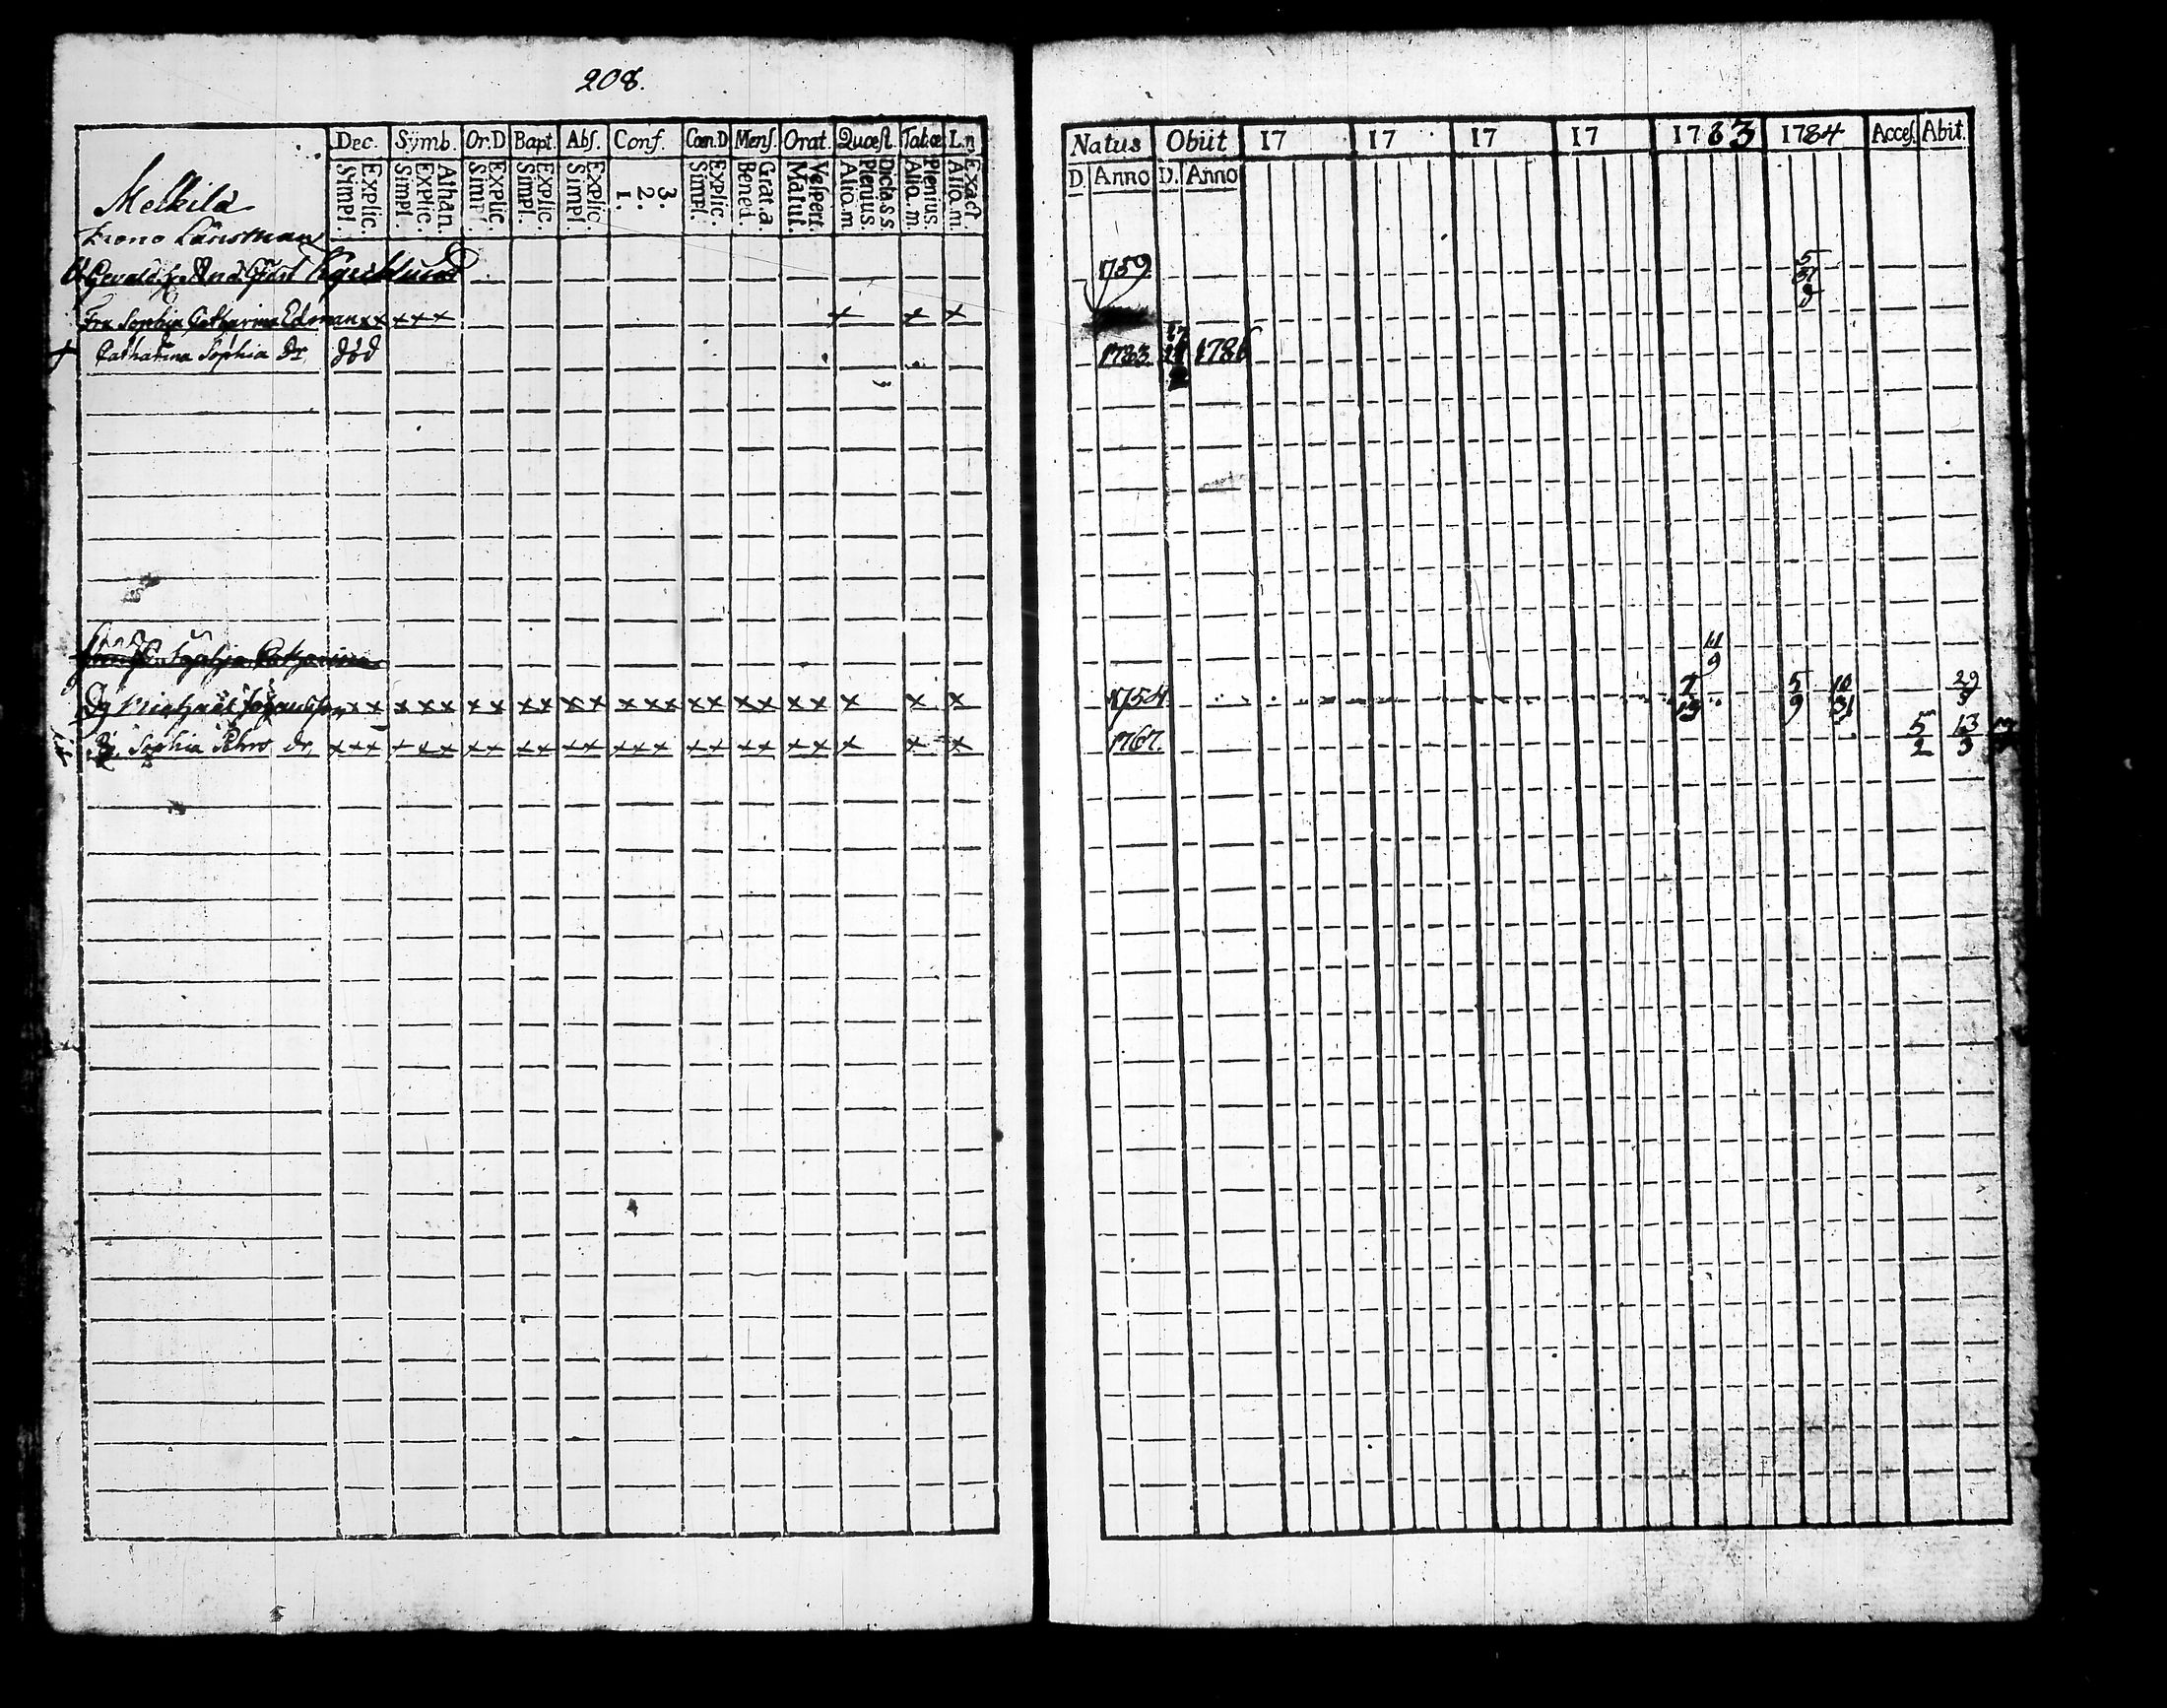 208.
Dec. Symb. Or.D Bapt. Abs. Conf. Cœn.D Mens. Orat. Quæst. Tab.œ L.n
Explic. Simpl. Athan. Explic. Simpl. Explic. Simpl. Explic. Simpl. Explic. Simpl. 3. 2. 1. Explic. Simpl. Grat.a Bened. Vespert. Matut. Dicta s s Plenius. Aliq.m Plenius. Aliq.m Exact Aliq.m
Melkilä
Krono Länsman
Fru Sophia Catharina Edman x x x x x x x x
Catharina Sophia dr. död
Sophia Catharina
Dg x x x x x x x x x x x x x x x x x x x x x x x x
Pg. Sophia Pehrs dr. x x x x x x x x x x x x x x x x x x x x x x x x
Natus Obiit 17 17 17 17 1783 1784 Acces. Abit.
D. Anno D. Anno
1759 5 31
1763 1786
11 9
1754 7 5 9 10 31 29 9
1767. 5 2 13 3